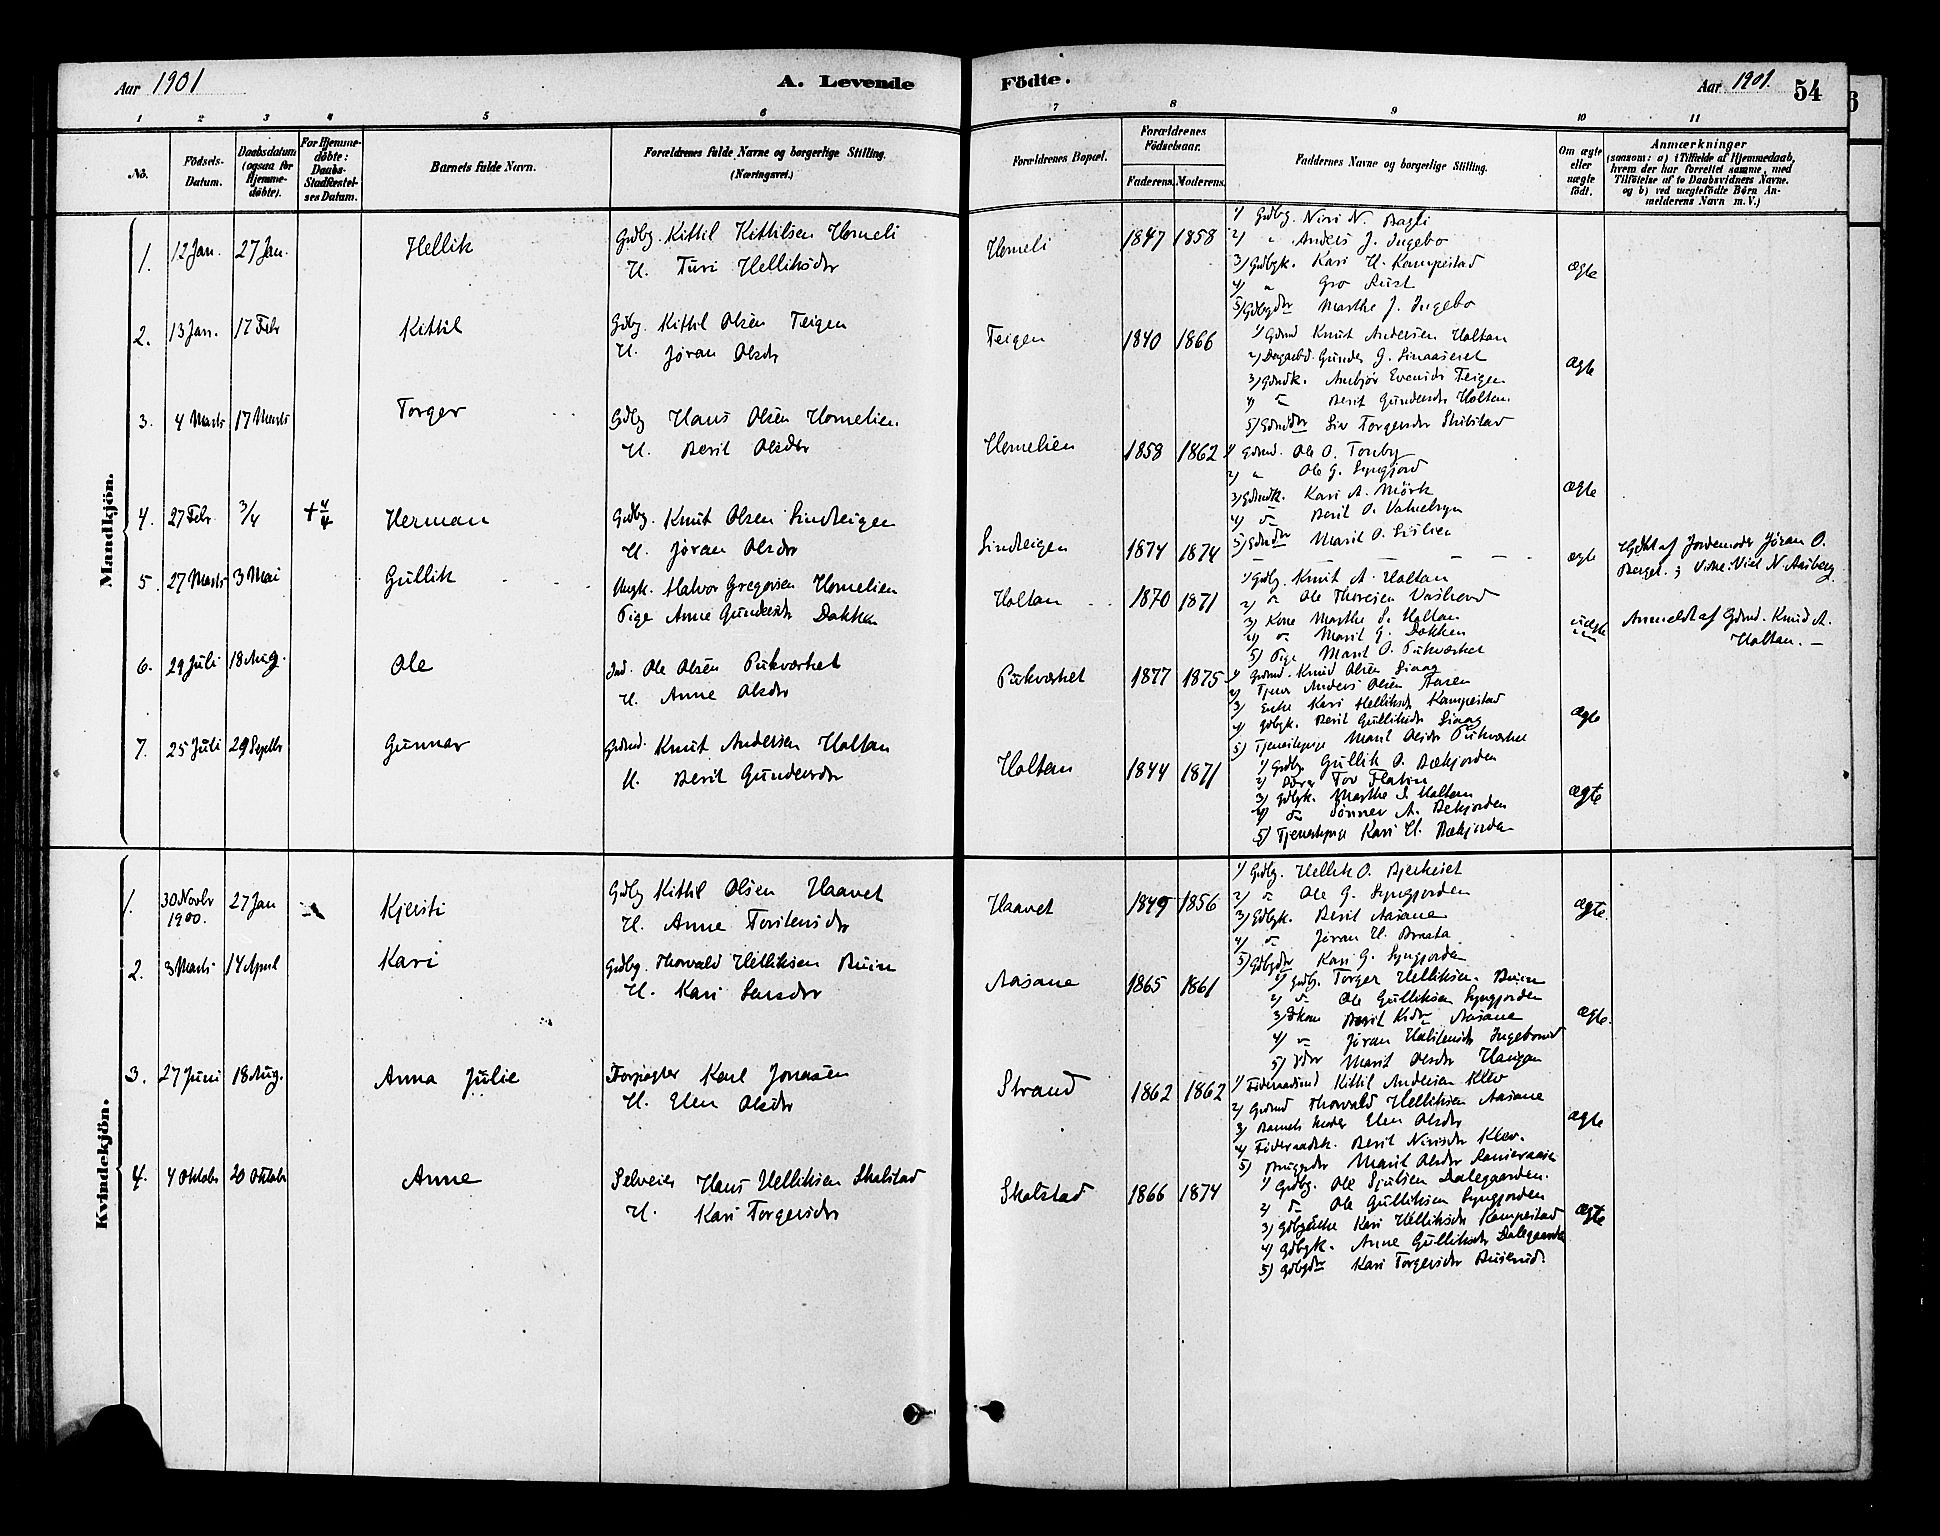 Aar 1901 A. Levende Födte. Aar 1901. 54
1 2 3 4 5 6 7 8 9 10 11
No.
Födsels-
Datum.
Daabsdatum
(ogsaa for
Hjemme-
döbte).
For Hjemme-
döbte:
Daabs-
Stadfæstel-
ses Datum.
Barnets fulde Navn.
Forældrenes fulde Navne og borgerlige Stilling.
(Næringsvei.)
Forældrenes Bopæl.
Forældrenes
Födselsaar.
Faderens. Moderens.
Faddernes Navne og borgerlige Stilling.
Om ægte
eller
uægte
födt.
Anmærkninger
(saasom: a) i Tilfælde af Hjemmedaab,
hvem der har forrettet samme, med
Tilföielse af to Daabsvidners Navne,
og b) ved uægtefödte Börn An-
melderens Navn m. V.)
Mandkjön.
1. 12 Jan. 27 Jan. Hellik
Gdbg. Kittil Kittilsen Homeli
H. Turi Helliksdr
Homeli 1847 1858
1) Gdbg. Niri N. Bagli
2) " Anders J. Ingebo
3) Gdbgk. Kari H. Kampestad
4) " Gro Rust
5) Gdbgdr Marthe J. Ingebo
ægte
2. 13 Jan. 17 Febr Kittil
Gdbg. Kittil Olsen Teigen
H. Jøran Olsdr
Teigen 1840 1866
1) Gdmd Knut Andersen Holtan
2) Dagarbd. Gunder G.
3) Gdmdk. Ambjør Evensdr Teigen
4) " Berit Gundersdr Holtan.
5) Gdmddr Siv Torgersdr Skilstad
ægte
3. 4 Marts 17 Marts Torger
Gdbg Hans Olsen Homelien
H. Berit Olsdr
Homelien 1858 1862
1) Gdmd. Ole O. Tonby
2) " Ole G. Lyngjord
3) Gdmdk. Kari A. Mörk
4) " Berit O.
5) Gdmdr Marit O.
ægte
4. 27 Febr. 3/4 + 4/4 Herman
Gdbg. Knut Olsen Sindteigen
H. Jøran Olsdr
Sindteigen 1874 1874 — — —
ægte
Hjdbt af Jordemoder Jöran O.
Berget.; Vidne: Niel N. Aasberg
5. 27 Marts 3 Mai Gullik
Ungk. Halvor Gregersen Homelien
Pige Anne Gundersdr Dokken
Holtan 1870 1871
1) Gdbg. Knut A. Holtan
2) " Ole Thoresen
3) Kone Marthe S. Holtan
4) " Marit G. Dokken
5) Pige Marit O. Pukværket
uægte
Anmeldt af Gdmd. Knud A.
Holtan. —
6. 29 Juli 18 Aug. Ole
Ind. Ole Olsen Pukværket
H. Anne Olsdr
Pukværket 1877 1875
1) Gdmd. Knud Olsen Liaag
2) Tjener Anders Olsen
3) Enke Kari Helliksdr Kampestad
4) Gdbgk. Berit Gulliksdr Liaag
5) Tjenestepige Marit Olsdr Pukværket
ægte
7. 25 Juli 29 Septbr Gunnar
Gdmd. Knut Andersen Holtan
H. Berit Gundersdr
Holtan 1844 1871
1) Gdbg. Gullik O. Bækjorden
2) Tov Flatin
3) Gdbgk. Marthe S. Holtan
4) " Sönnev A. Bekjorden
5) Tjenestepige Kari H. Bækjorden
ægte
Kvindekjön.
1. 30 Novbr
1900. 27 Jan Kjersti
Gdbg Kittil Olsen Haavet
H. Anne Torstensdr
Haavet 1849 1856
1) Gdbg. Hellik O. Bjerkeset
2) " Ole G. Lyngjorden
3) Gdbgk. Berit Aasane
4) " Jøran H. Braata
5) Gdbgdr Kari G. Lyngjorden
ægte.
2. 3 Marts 14 April Kari
Gdbg. Thorvald Helliksen Buin
H. Kari Larsdr
Aasane 1865 1861
1) Gdbg. Torger Helliksen Buin
2) " Ole Gulliksen Lyngjorden
3) Berit Aasane
4) " Jøran
5) Marit Olsdr Haugan
ægte.
3. 27 Juni 18 Aug. Anna Julie
Forpagter Karl Jonasen
H. Elen Olsdr
Strand 1862 1862
1) Föderaadsmd Kittil Andersen Klev
2) Gdmd Thorvald Helliksen Aasane
3) Barnets Moder Elen Olsdr
4) Föderaadsk. Berit Nirisdr Klev.
5) Marit Olsdr
ægte
4. 4 Oktobr 20 Oktobr Anne
Selveier Hans Helliksen Skolstad
H. Kari Torgersdr
Skolstad 1866 1874
1) Gdbg. Ole Sjulsen Dalegaarden.
2) " Ole Gulliksen Lyngjorden
3) Gdbgenke Kari Helliksdr Kampestad
4) Gdbgk. Anne Gulliksdr Dalegaarden
5) Gdbgdr Kari Torgersdr Buserud.
ægte